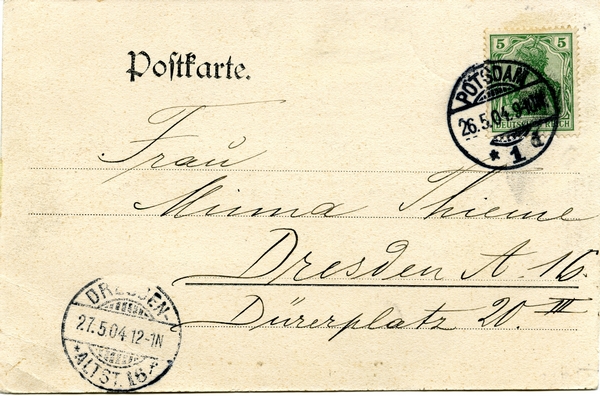 Postkarte.
5 5
DEUTSCHES REICH
POTSDAM
26.5.04.9-10V.
* 1 d.
Frau
Minna Thieme
Dresden A. 16.
Dürerplatz 20. III
DRESDEN
27.5.04 12-1N
* ALTST. 16 *